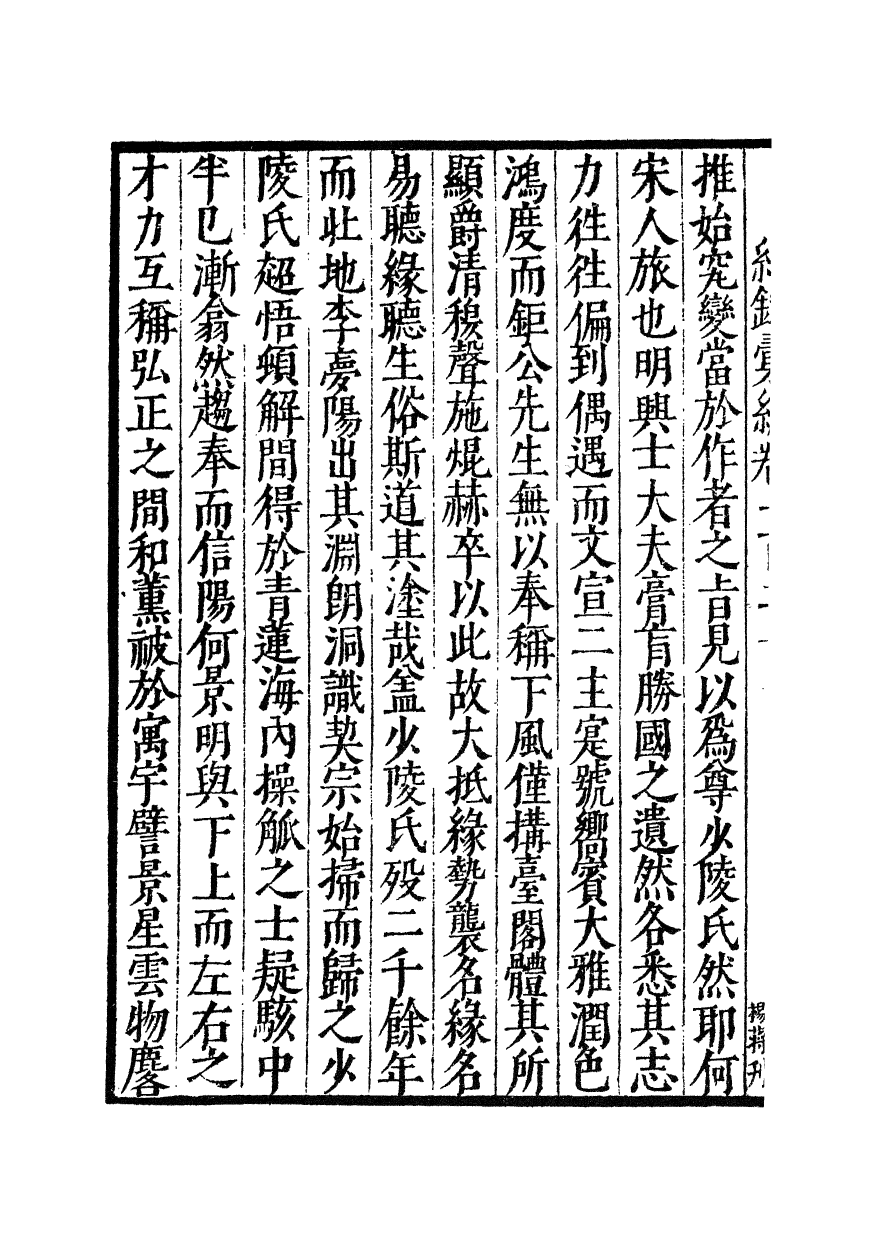 推始究變當於作者之旨見以爲尊少陵氏然耶何
宋人旅也明興士大夫膏肓勝國之遺然各悉其志
力徃徃偏到偶遇而文宣二主寔號嚮賓大雅潤色
鴻度而鉅公先生無以奉稱下風僅搆臺閣體其所
顯爵清穆聲施焜赫卒以此故大抵緣勢襲名緣名
易聽緣聽生俗斯道其塗哉盖少陵氏殁二千餘年
而北地李夢陽出其淵朗洞識契宗始掃而歸之少
陵氏超悟頓解間得於青蓮海內操觚之士疑駭中
半已漸翕然趨奉而信陽何景明與下上而左右之
才力互稱弘正之間和薰被於寓宇譬景星雲物麐
楊蔣刊